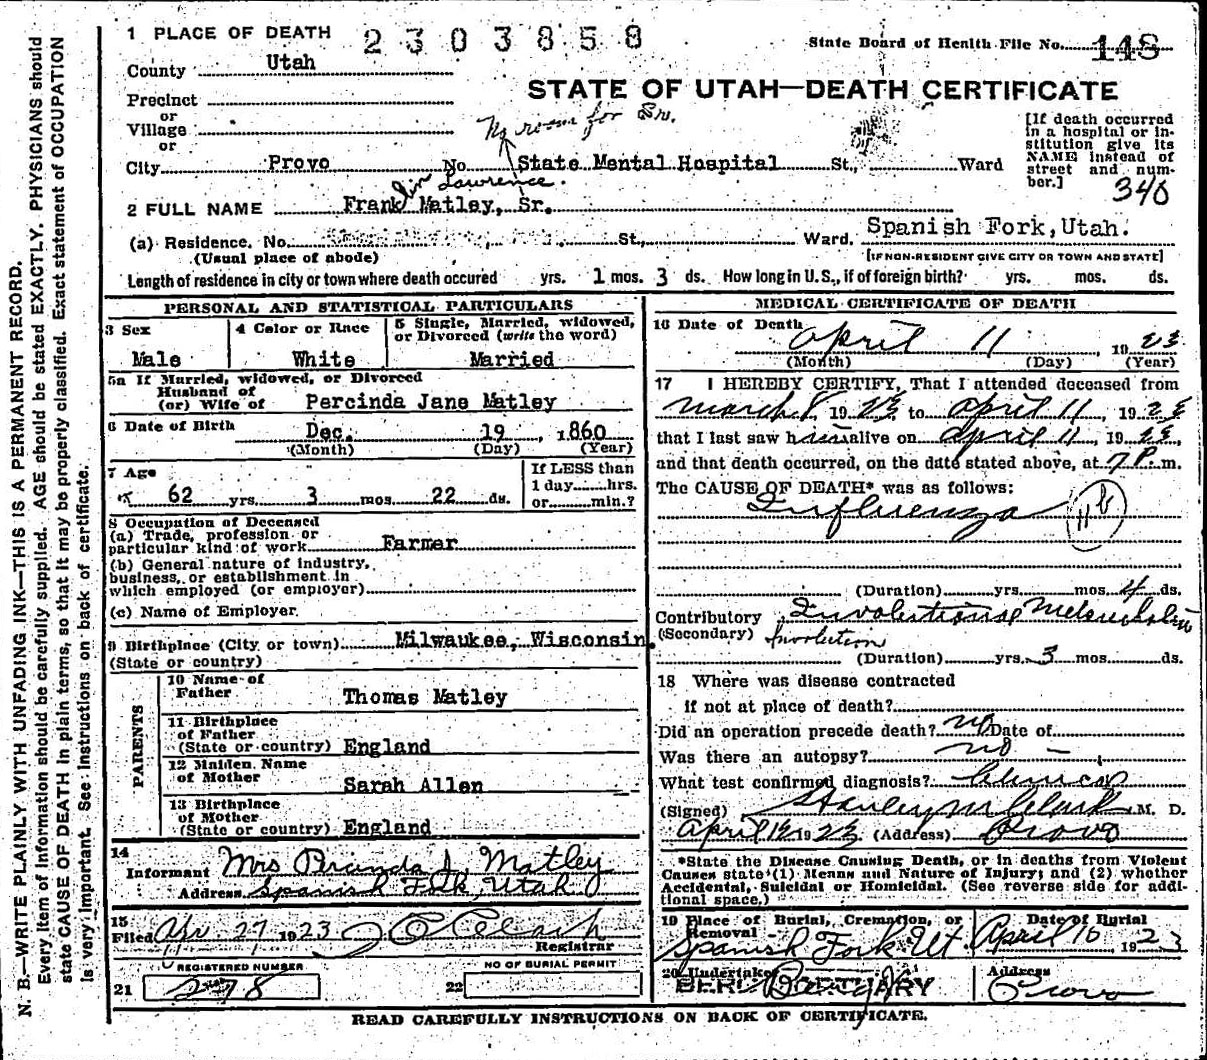 1 PLACE OF DEATH 2303858 State Board of Health File No. 148
County Utah
STATE OF UTAH—DEATH CERTIFICATE
Precinct
or
Village
or
No room for Sr.
[If death occurred in a hospital or institution give its NAME instead of street and number.]
City Provo No. State Mental Hospital St., Ward
340
Lawrence.
2 FULL NAME Frank Matley, Sr.
(a) Residence. No. St., Ward. Spanish Fork, Utah.
(Usual place of abode) [IF NON-RESIDENT GIVE CITY OR TOWN AND STATE]
Length of residence in city or town where death occured yrs. 1 mos. 3 ds. How long in U.S., if of foreign birth? yrs. mos. ds.
PERSONAL AND STATISTICAL PARTICULARS
3 Sex
Male
4 Color or Race
White
5 Single, Married, widowed, or Divorced (write the word)
Married
5a If Married, widowed, or Divorced
Husband of
(or) Wife of Percinda Jane Matley
6 Date of Birth Dec. 19, 1860
(Month) (Day) (Year)
7 Age
62 yrs. 3 mos. 22 ds.
If LESS than
1 day hrs.
or min.?
8 Occupation of Deceased
(a) Trade, profession or
particular kind of work Farmer
(b) General nature of industry,
business, or establishment in
which employed (or employer)
(c) Name of Employer
9 Birthplace (City or town) Milwaukee, Wisconsin.
(State or country)
PARENTS
10 Name of
Father Thomas Matley
11 Birthplace
of Father
(State or country) England
12 Maiden Name
of Mother Sarah Allen
13 Birthplace
of Mother
(State or country) England
14
Informant Mrs J. Matley
Address Spanish Fork, Utah
15
Filed Apr. 27, 1923
Registrar
REGISTERED NUMBER
21 278
NO OF BURIAL PERMIT
22
MEDICAL CERTIFICATE OF DEATH
16 Date of Death
April 11, 1923
(Month) (Day) (Year)
17 I HEREBY CERTIFY, That I attended deceased from
March 8, 1923 to April 11, 1923
that I last saw him alive on April 11, 1923,
and that death occurred, on the date stated above, at 7 P.m.
The CAUSE OF DEATH* was as follows:
Influenza 11b
(Duration) yrs. mos. 4 ds.
Contributory Involutional Melancholia
(Secondary) Involution
(Duration) yrs. 3 mos. ds.
18 Where was disease contracted
if not at place of death?
Did an operation precede death? no Date of
Was there an autopsy? no
What test confirmed diagnosis? Clinical
(Signed) Stanley M Clark M. D.
April 12 1923 (Address) Provo
*State the Disease Causing Death, or in deaths from Violent
Causes state (1) Means and Nature of Injury; and (2) whether
Accidental, Suicidal or Homicidal. (See reverse side for addi-
tional space.)
19 Place of Burial, Cremation, or
Removal
Spanish Fork Ut
Date of Burial
April 16, 1923
20 Undertaker
Address
Provo
READ CAREFULLY INSTRUCTIONS ON BACK OF CERTIFICATE.
N. B.—WRITE PLAINLY WITH UNFADING INK—THIS IS A PERMANENT RECORD.
Every item of information should be carefully supplied. AGE should be stated EXACTLY. PHYSICIANS should
state CAUSE OF DEATH in plain terms, so that it may be properly classified. Exact statement of OCCUPATION
is very important. See instructions on back of certificate.